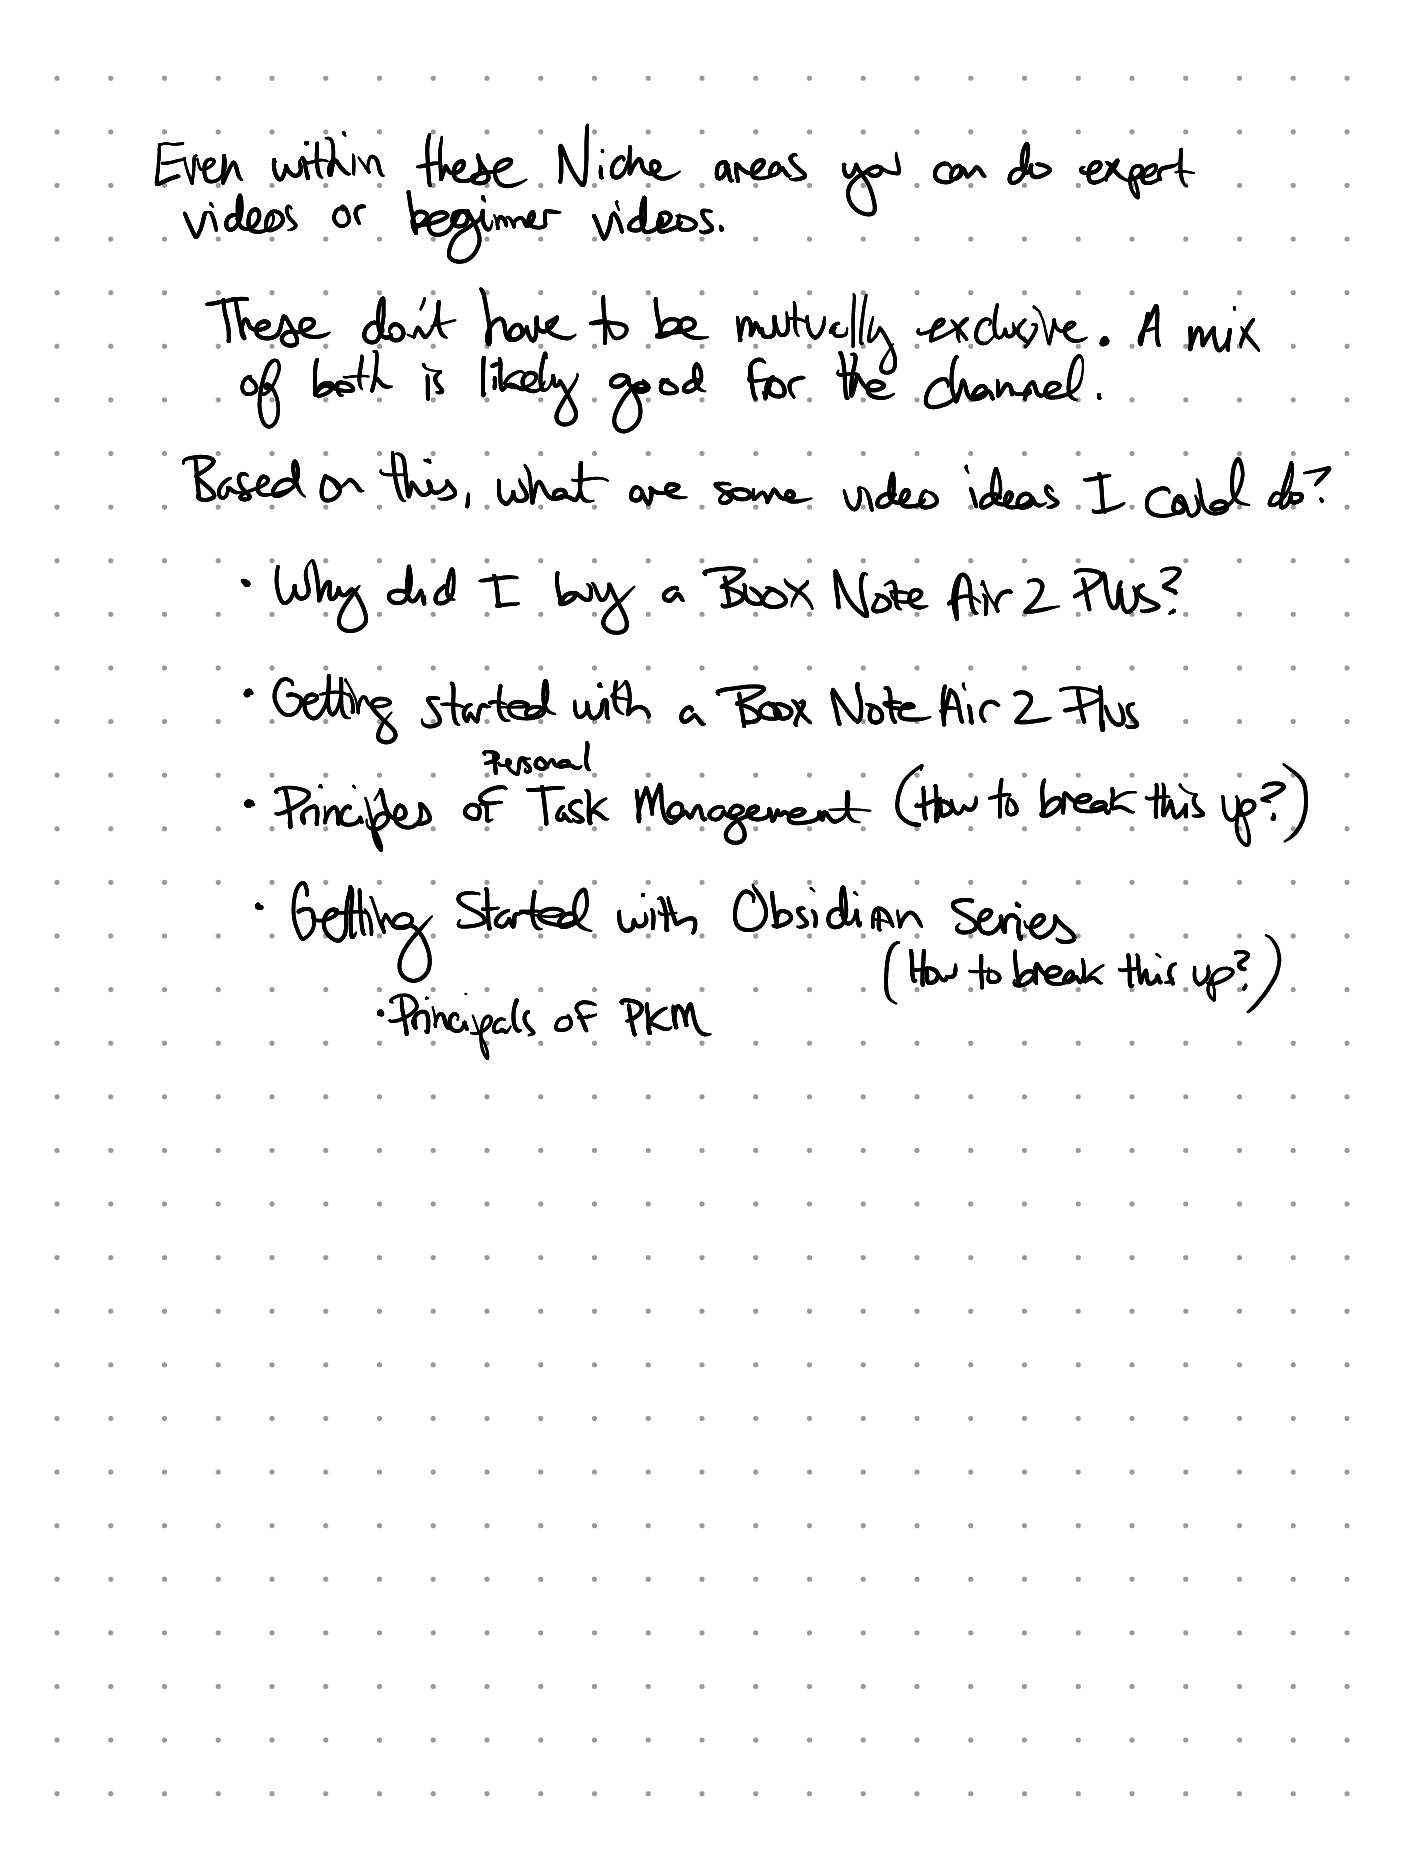 Even within these Niche areas you can do expert
videos or beginner videos.
These don't have to be mutually exclusive. A mix
of both is likely good for the channel.
Based on this, what are some video ideas I could do?
• Why did I buy a Boox Note Air 2 Plus?
• Getting started with a Boox Note Air 2 Plus
Personal
• Principles of Task Management (How to break this up?)
• Getting Started with Obsidian Series
(How to break this up?)
• Principals of PKM